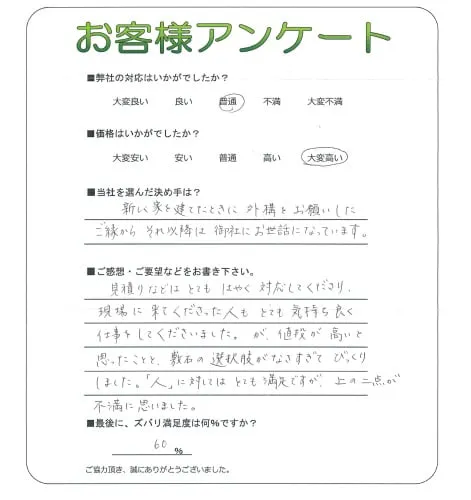 お客様アンケート
■弊社の対応はいかがでしたか？
大変良い 良い 普通 不満 大変不満
■価格はいかがでしたか？
大変安い 安い 普通 高い 大変高い
■当社を選んだ決め手は？
新しく家を建てたときに 外構をお願いした
ご縁から それ以降は 御社にお世話になっています。
■ご感想・ご要望などをお書き下さい。
見積りなどは とても はやく 対応してくださり、
現場に 来てくださった人も とても 気持ち良く
仕事をしてくださいました。が、値段が 高いと
思ったことと、敷石の 選択肢がなさすぎて びっくり
しました。「人」に対しては とても満足ですが、上の二点が
不満に思いました。
■最後に、ズバリ満足度は何％ですか？
60 %
ご協力頂き、誠にありがとうございました。